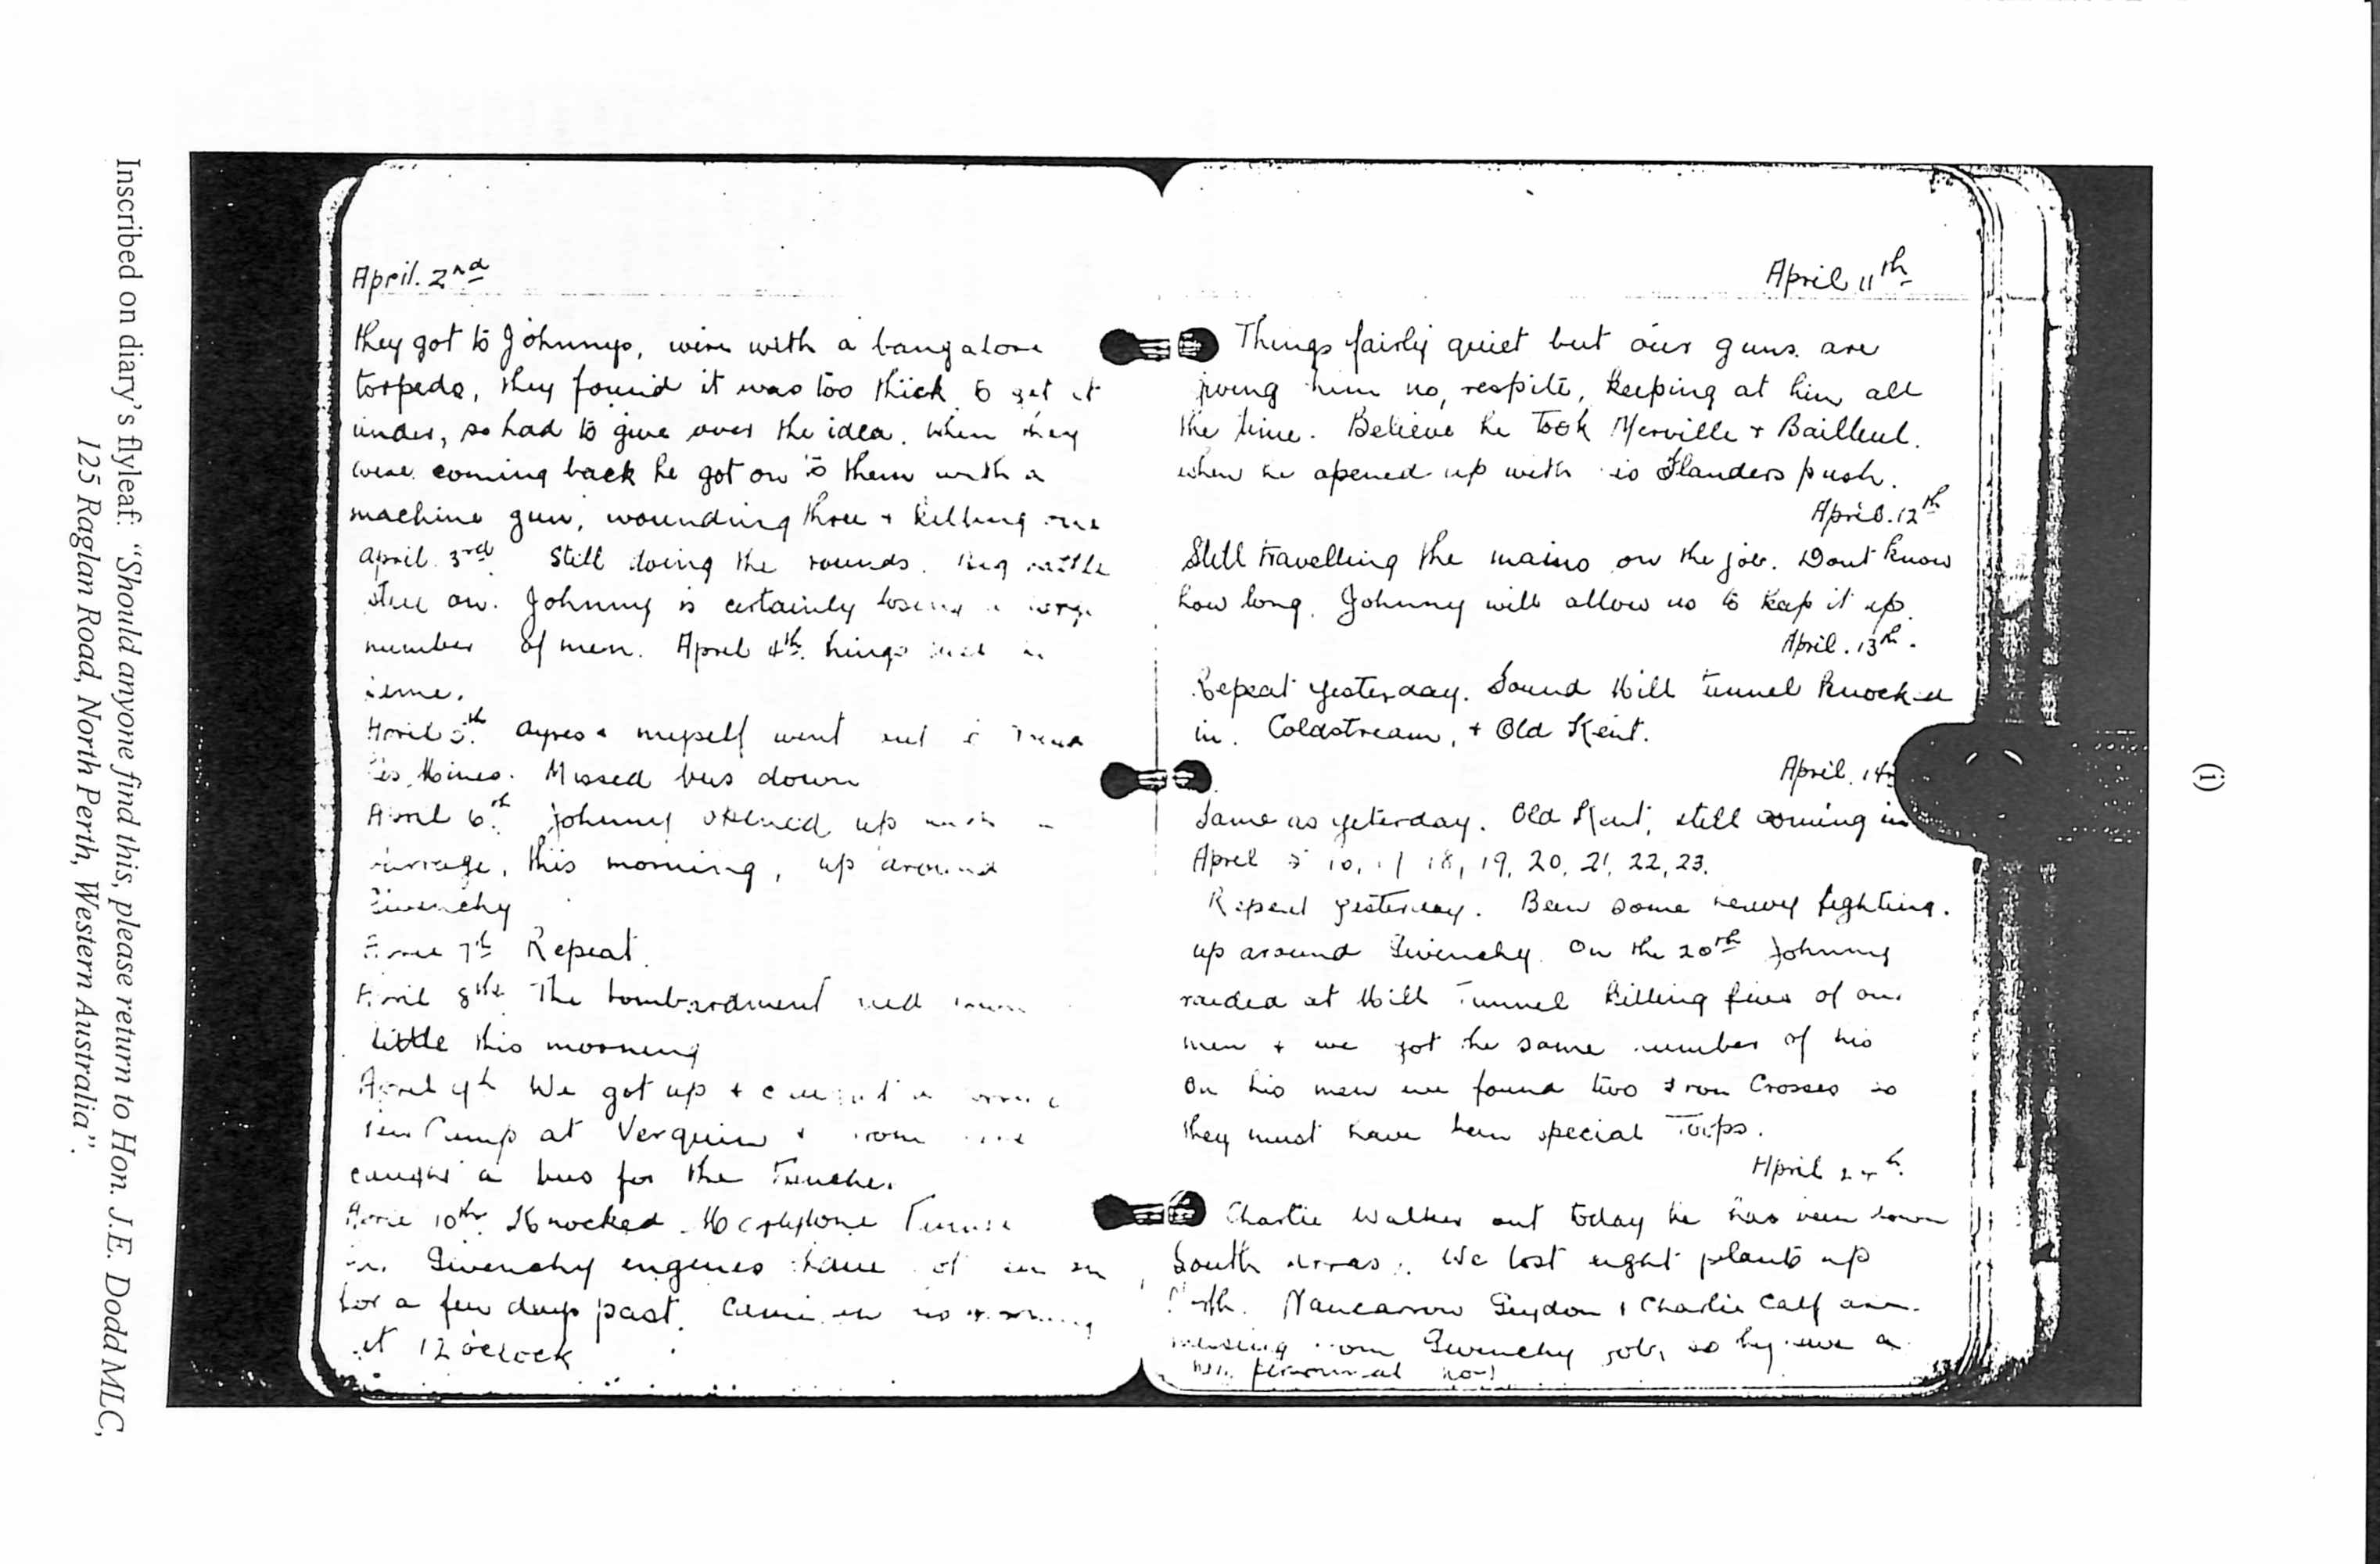 April. 2nd
they got to Johnnys, wire with a bangalore
torpedo, they found it was too thick to get it
under, so had to give over the idea. When they
were coming back he got on to them with a
machine gun, wounding three + killing one
April 3rd. Still doing the rounds. Big battle
still on. Johnny is certainly losing a large
number of men. April 4th.
same.
April 5th. Ayres + myself went out
Les Mines. Missed bus down
April 6th. Johnny opened up with a
barrage, this morning, up around
Givenchy
April 7th Repeat.
April 8th The bombardment
little this morning
April 9th We got up + caught a
at Verquin + from
caught a bus for the Trenches
April 10th. Knocked
Givenchy engines have
for a few days past. Came
at 12 oclock
April 11th
Things fairly quiet but our guns. are
giving him no, respite, keeping at him all
the time. Believe he Took Merville + Bailleul.
when he opened up with is Flanders push.
April. 12th
Still travelling the mains on the job. Dont know
how long. Johnny will allow us to keep it up.
April. 13th.
Repeat yesterday. Hill Tunnel knocked
in. Coldstream, + Old Kent.
April. 14
Same as yeterday. Old Kent, still coming in
April 18, 19, 20, 21, 22, 23.
Repeat yesterday. Been some heavy fighting.
up around Givenchy. On the 20th Johnny
raided at Hill Tunnel killing five of our
men + we got the same number of his
On his men we found two Iron Crosses so
they must have been special
April
Charlie Walker out today he has been down
South Arras. We lost eight plants up
North. Nancarrow + Charlie Calf are
missing from Givenchy job, so
now
(i)
Inscribed on diary's flyleaf: "Should anyone find this, please return to Hon. J.E. Dodd MLC,
125 Raglan Road, North Perth, Western Australia".